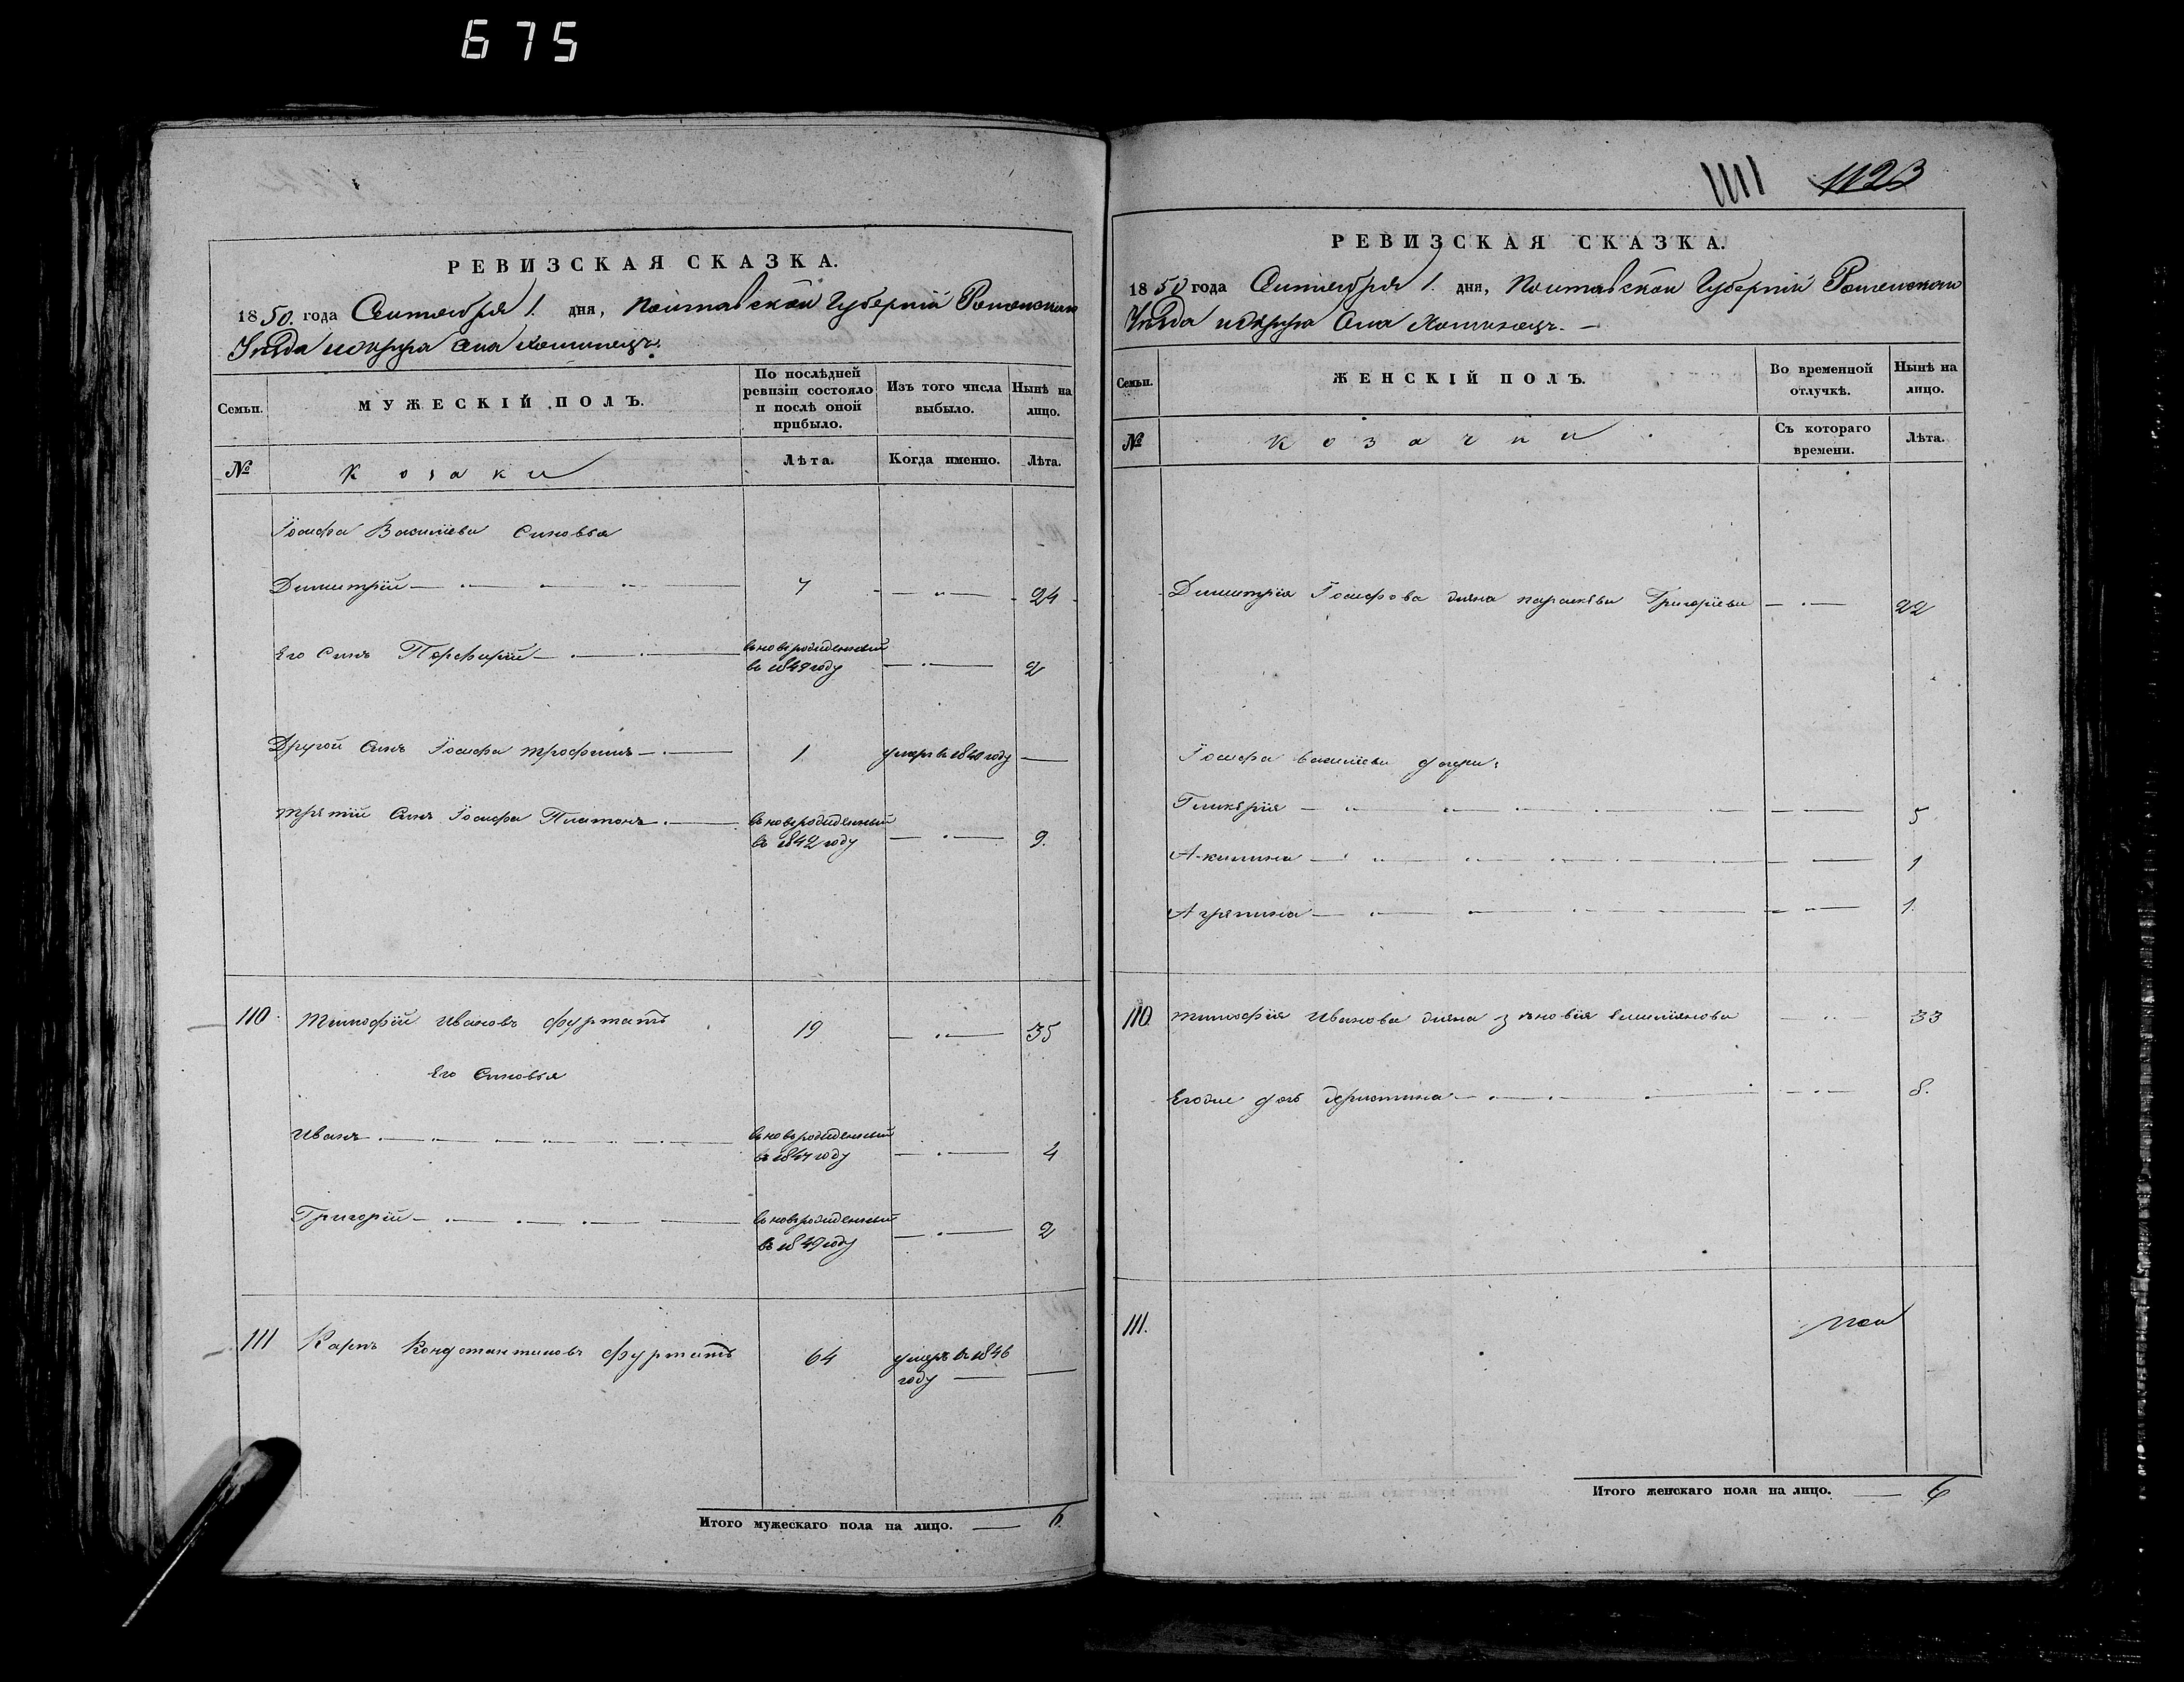 675
РЕВИЗСКАЯ СКАЗКА.
1850. года Сентября 1. дня, Полтавской Губерніи Роменскаго
Уѣзда и округа Села
Семьи.
МУЖЕСКІЙ ПОЛЪ.
По послѣдней ревизіи состояло и послѣ оной прибыло.
Изъ того числа выбыло.
Нынѣ на лицо.
№
Козаки
Лѣта.
Когда именно.
Лѣта.
Іосифа Васильева Сыновья
Димитрій 7 24
Его Сынъ Порфирій вновьрожденный
въ 1849 году 2
Другой Сынъ Іосифа Трофимъ 1 умеръ въ 1840 году
Третій Сынъ Іосифа Платонъ вновьрожденный
въ 1842 году 9.
110 Тимофѣй Ивановъ 19 35
Его Сыновья
Иванъ вновьрожденный
въ 1847 году 4
Григорій вновьрожденный
въ 1849 году 2
111 Карпъ Константиновъ 64 умеръ въ 1846
году
Итого мужескаго пола на лицо. 6.
1111 1123
РЕВИЗСКАЯ СКАЗКА.
1850 года Сентября 1. дня, Полтавской Губерніи Роменскаго
Уѣзда и округа Села
Семьи.
ЖЕНСКІЙ ПОЛЪ.
Во временной отлучкѣ.
Нынѣ на лицо.
№
Козачки
Съ котораго времени.
Лѣта.
Димитрія Іосифова жена Параскева Григорьева 22
Іосифа Васильева дочери:
Гликерія 5
Акилина 1
Агрипина 1.
110. Тимофѣя Иванова жена Зѣновія Емиліянова 33
Егоже дочь 8.
111.
Итого женскаго пола на лицо. 6